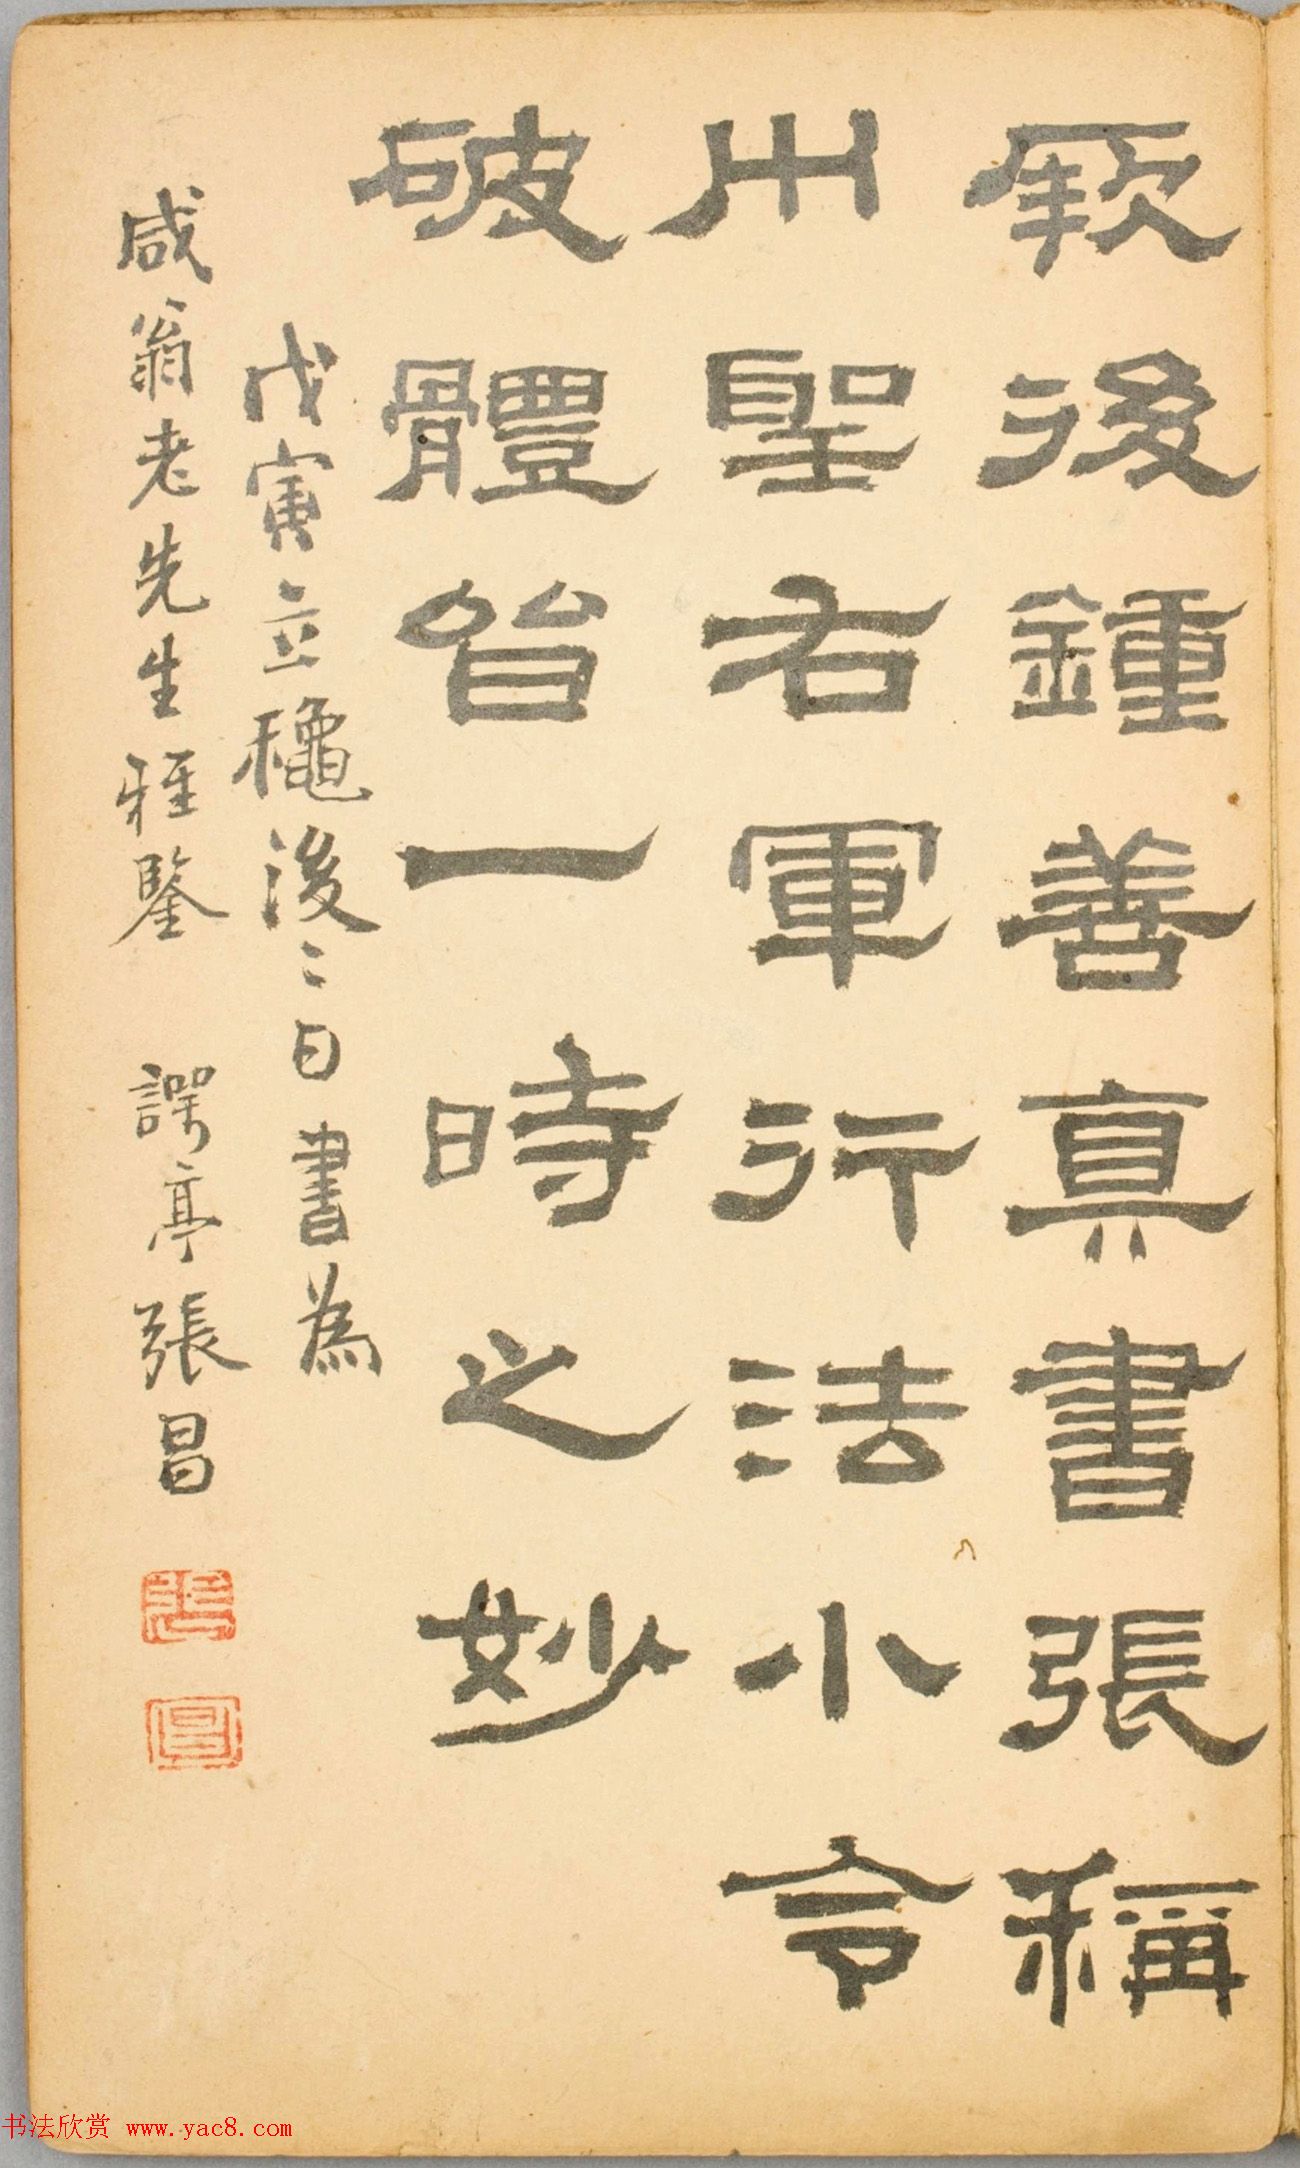 厥後鍾善真書張稱
艸聖右軍行法小令
破體皆一時之妙
戊寅立龝後二日書為
咸翁老先生雅鑒 諤亭張昌
張
昌
书法欣赏 www.yac8.com